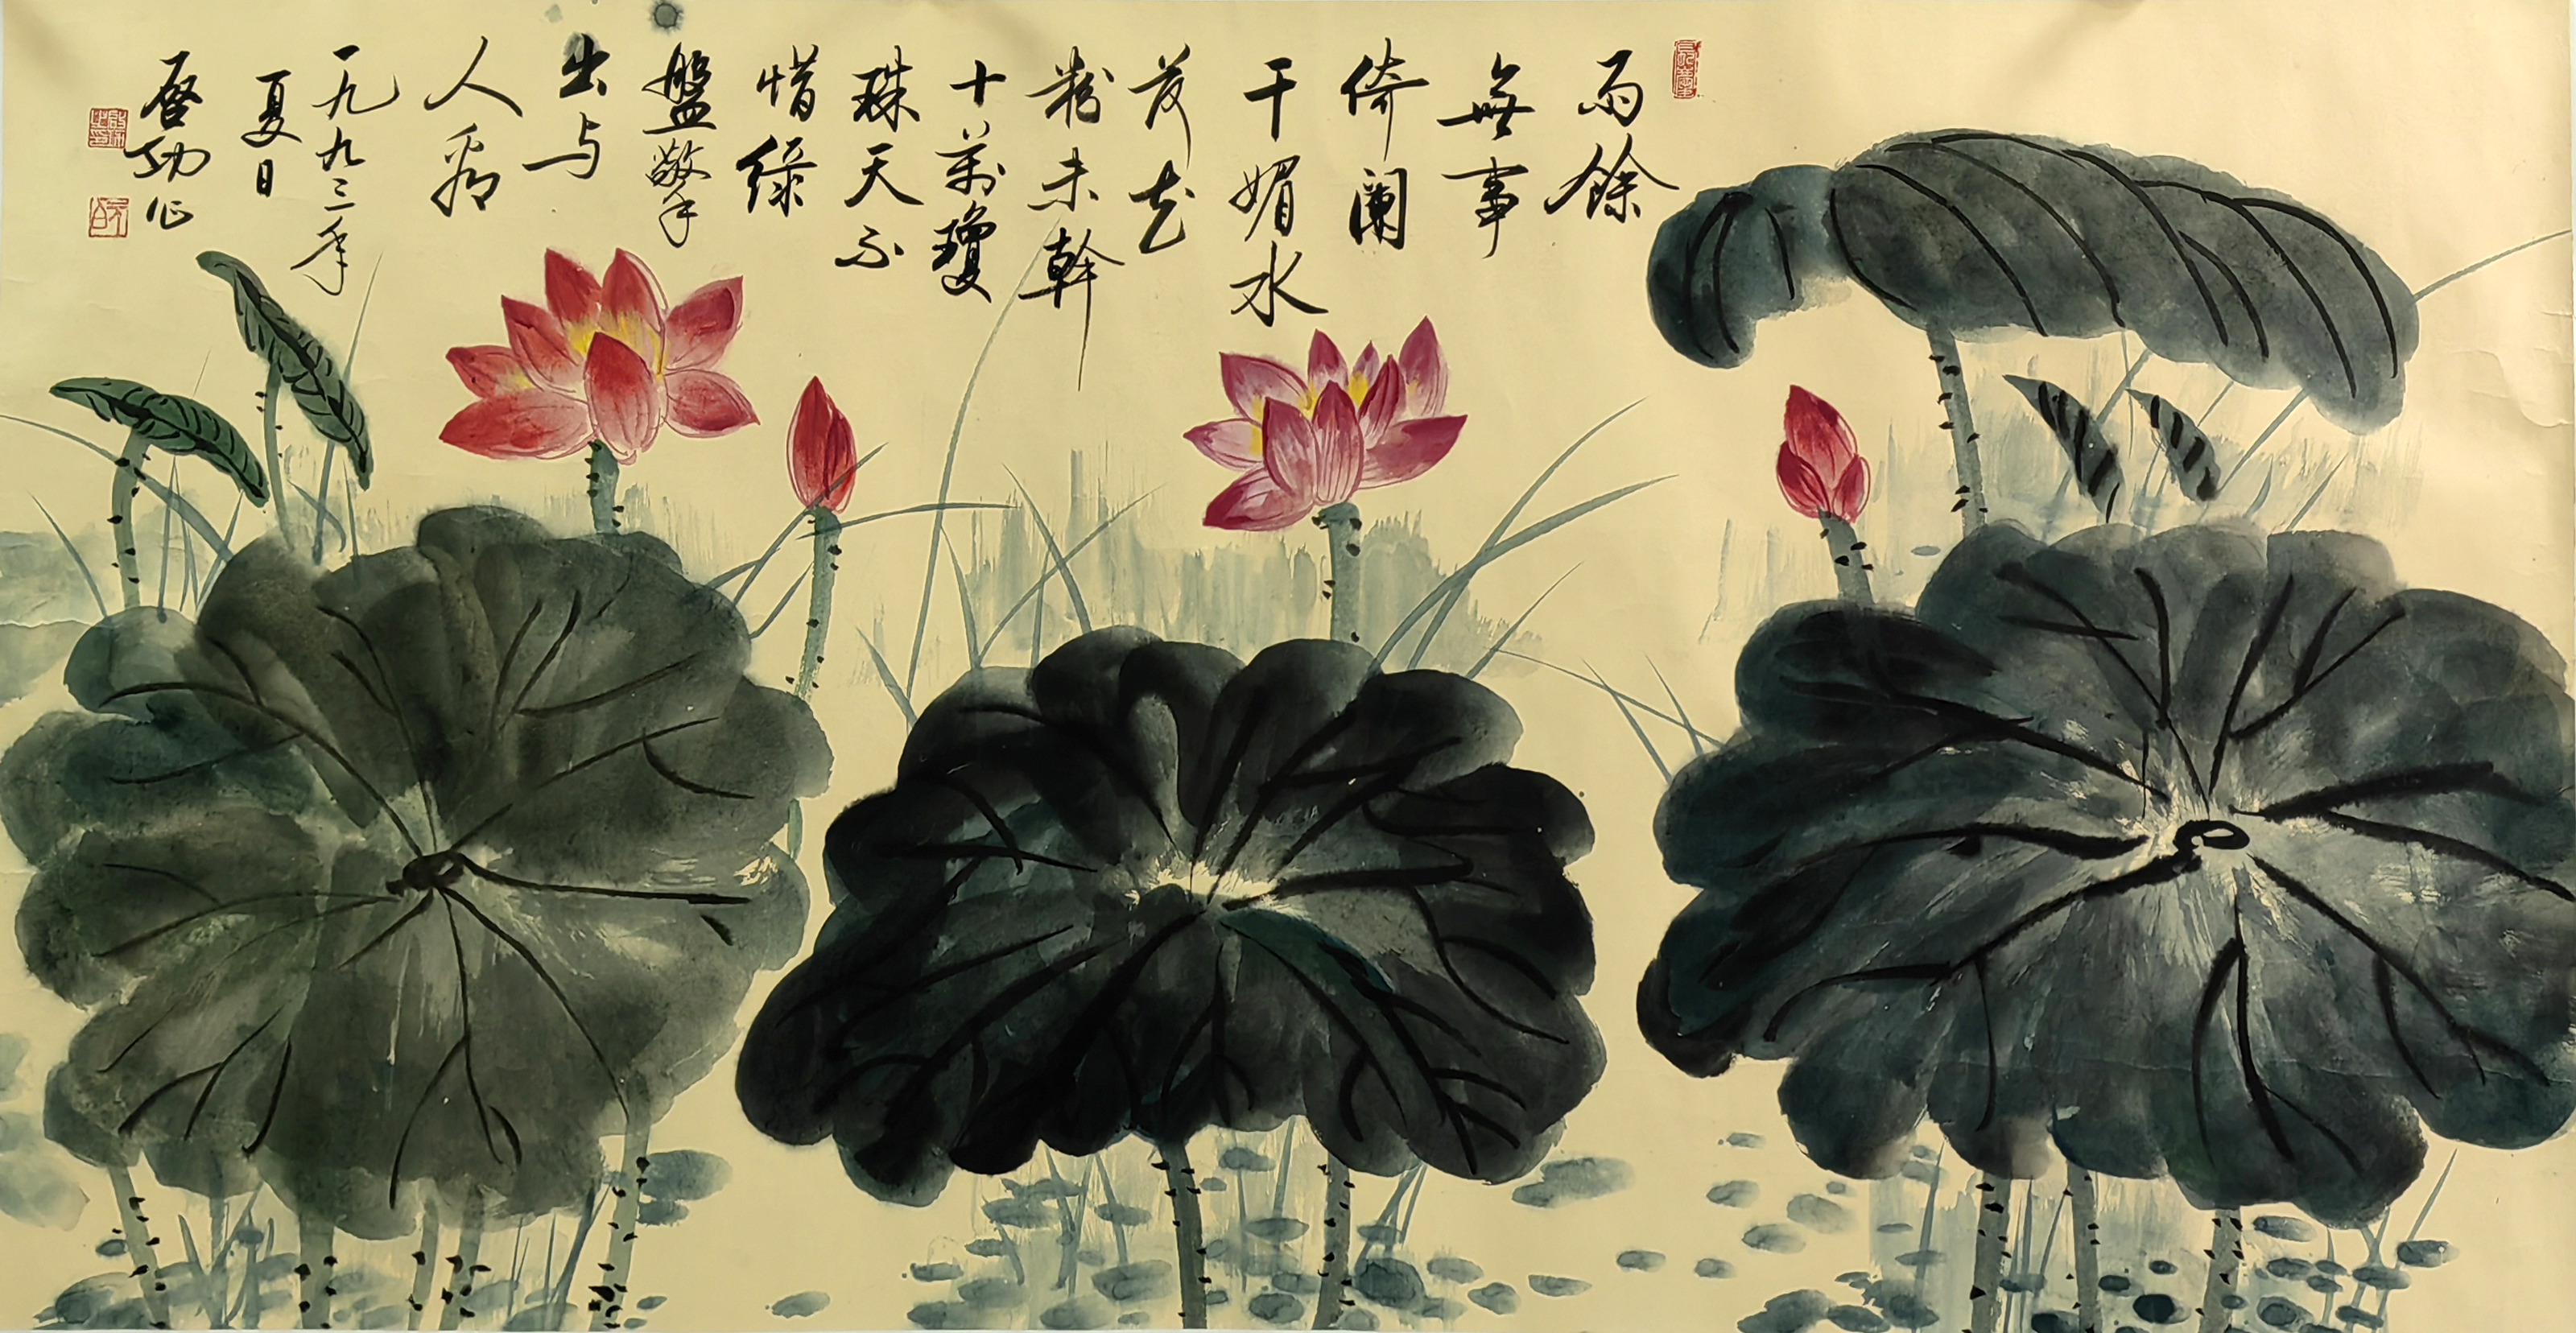 雨餘
無事
倚闌
干媚水
荷花
粉未幹
十萬瓊
珠天不
惜綠
盤擎
出与
人看
一九九三年
夏日
启功作